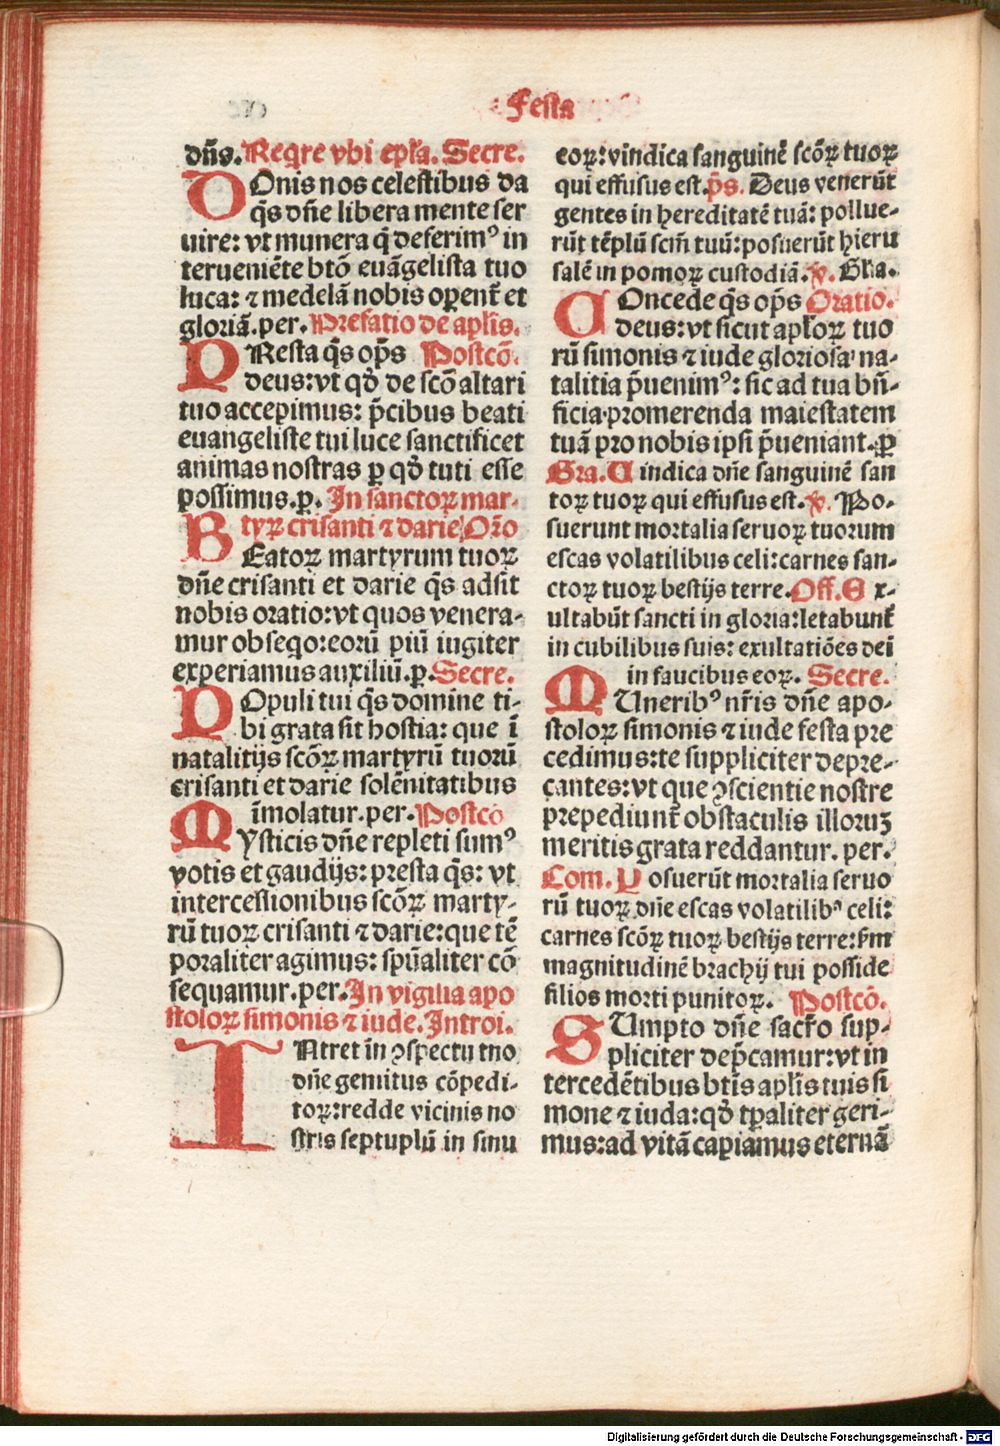 Festa
dn̄s. Reqre vbi ep̄la. Secre.
DOnis nos celestibus da
q̄s dn̄e libera mente ser
uire: vt munera q̄ deferimꝰ in
terueniēte btō euāgelista tuo
luca: ⁊ medelā nobis oꝑent̄ et
gloriā. per. Prefatio de apl̄is.
PResta q̄s op̄s Postcō.
deus: vt qd̄ de scō altari
tuo accepimus: p̄cibus beati
euangeliste tui luce sanctificet
animas nostras ꝑ qd̄ tuti esse
possimus. ꝑ. In sanctoꝝ mar-
tyꝝ crisanti ⁊ darie Orō
BEatoꝝ martyrum tuoꝝ
dn̄e crisanti et darie q̄s adsit
nobis oratio: vt quos venera-
mur obseqo: eorū piū iugiter
experiamus auxiliū. ꝑ. Secre.
POpuli tui q̄s domine ti-
bi grata sit hostia: que ī
natalitijs scōꝝ martyrū tuorū
crisanti et darie solēnitatibus
īmolatur. per. Postcō
MYsticis dn̄e repleti sumꝰ
votis et gaudijs: presta q̄s: vt
intercessionibus scōꝝ marty-
rū tuoꝝ crisanti ⁊ darie: que tē
poraliter agimus: spūaliter cō
sequamur. per. In vigilia apo
stoloꝝ simonis ⁊ iude. Introi.
INtret in ꝯspectu tuo
dn̄e gemitus cōpedi-
toꝝ: redde vicinis no
stris septuplū in sinu
eoꝝ: vindica sanguinē scōꝝ tuoꝝ
qui effusus est. p̄s. Deus venerūt
gentes in hereditatē tuā: pollue-
rūt tēplū scm̄ tuū: posuerūt hieru
salē in pomoꝝ custodiā. v. Gl̄ia.
COncede q̄s op̄s Oratio.
deus: vt sicut apl̄oꝝ tuo
rū simonis ⁊ iude gloriosa na-
talitia p̄uenimꝰ: sic ad tua bn̄-
ficia promerenda maiestatem
tuā pro nobis ipsi p̄ueniant. ꝑ
Gra. Uindica dn̄e sanguinē san
toꝝ tuoꝝ qui effusus est. v. Po-
suerunt mortalia seruoꝝ tuorum
escas volatilibus celi: carnes san-
ctoꝝ tuoꝝ bestijs terre. Off. Ex-
ultabūt sancti in gloria: letabunt̄
in cubilibus suis: exultatiōes dei
in faucibus eoꝝ. Secre.
MUneribꝰ nr̄is dn̄e apo-
stoloꝝ simonis ⁊ iude festa pre
cedimus: te suppliciter depre-
cantes: vt que ꝯscientie nostre
prepediunt̄ obstaculis illoruꝫ
meritis grata reddantur. per.
Com. Posuerūt mortalia seruo
rū tuoꝝ dn̄e escas volatilibꝰ celi:
carnes scōꝝ tuoꝝ bestijs terre: s̄m
magnitudinē brachij tui posside
filios morti punitoꝝ. Postcō.
SUmpto dn̄e sacr̄o sup-
pliciter dep̄camur: vt in
tercedētibus btīs apl̄is tuis si
mone ⁊ iuda: qd̄ tp̄aliter geri-
mus: ad vitā capiamus eternā
Digitalisierung gefördert durch die Deutsche Forschungsgemeinschaft - DFG